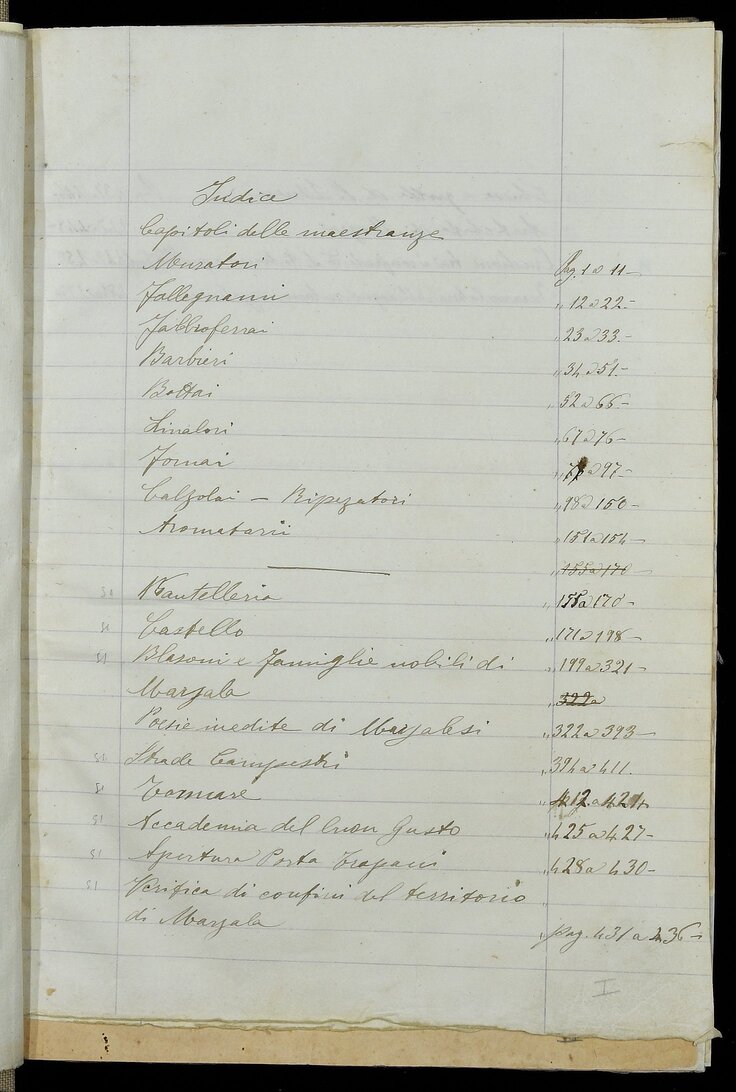 Indice
Capitoli delle maestranze
Muratori Pag. 1 a 11-
Fallegnami " 12 a 22-
Fabbroferrai " 23 a 33-
Barbieri " 34 a 51-
Bottai " 52 a 66-
Linalori " 67 a 76-
Fornai " 77 a 97-
Calzolai - Ripezatori " 98 a 150-
Aromatarii " 151 a 154-
" 155 a 170
Mantelleria " 155 a 170-
Castello " 171 a 198-
Blasoni e famiglie nobili di " 199 a 321-
Marsala 322 a
Poesie inedite di Marsalesi " 322 a 393-
Strade Campestri " 394 a 411.
Tonnare " 412 a 424
Accademia del buon Gusto " 425 a 427-
Apertura Porta Trapani " 428 a 430-
Verifica di confini del territorio "
di Marsala " pag. 431 a 436-
I